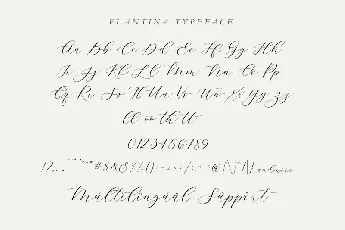 FLANTINA TYPEFACE
Aa Bb Cc Dd Ee Ff Gg Hh
Ii Jj Kk Ll Mm Nn Oo Pp
Qq Rr Ss Tt Uu Vv Ww Xx Yy Zz
ll oo th tt
0123456789
Multilingual Support